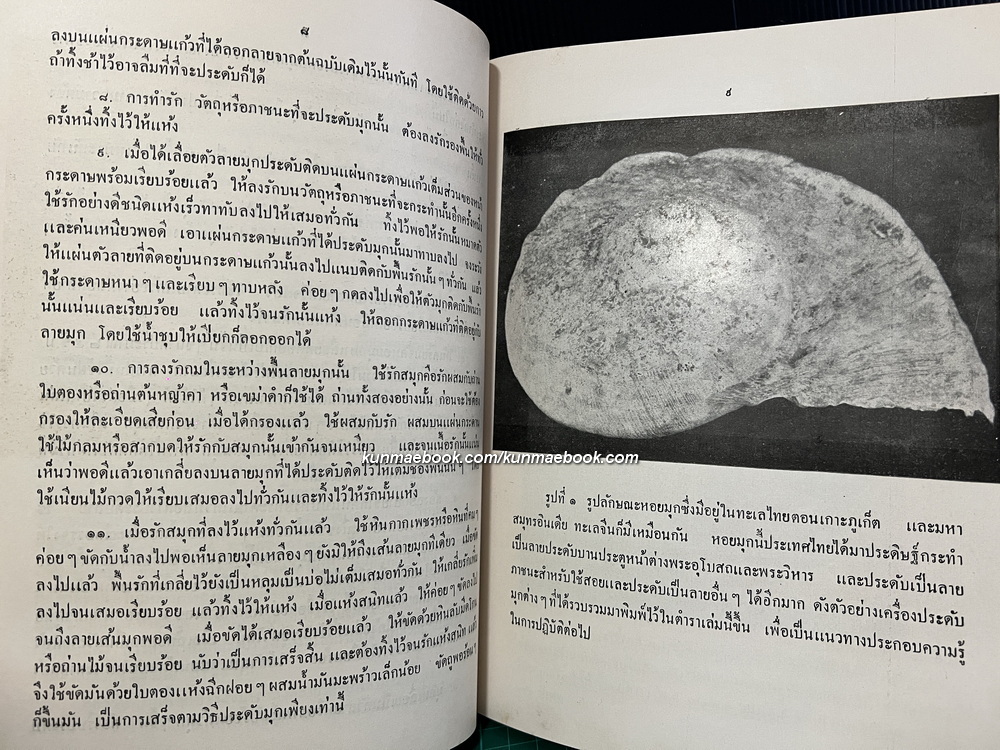 ๘
ลงบนแผ่นกระดาษแก้วที่ได้ลอกลายจากต้นฉบับเดิมไว้นั้นทันที โดยใช้ติดด้วยกาว
ถ้าทิ้งช้าไว้อาจลืมที่ที่จะประดับก็ได้
๘. การทำรัก วัตถุหรือภาชนะที่จะประดับมุกนั้น ต้องลงรักรองพื้นให้ทั่ว
ครั้งหนึ่งทิ้งไว้ให้แห้ง
๙. เมื่อได้เลื่อยตัวลายมุกประดับติดบนแผ่นกระดาษแก้วเต็มส่วนของหน้า
กระดาษพร้อมเรียบร้อยแล้ว ให้ลงรักบนวัตถุหรือภาชนะที่จะกระทำนั้นอีกครั้งหนึ่ง
ใช้รักอย่างดีชนิดแห้งเร็วทาทับลงไปให้เสมอทั่วกัน ทิ้งไว้พอให้รักนั้นหมาดตัว
และค่นเหนียวพอดี เอาแผ่นกระดาษแก้วที่ได้ประดับมุกนั้นมาทาบลงไป จงระวัง
ให้แผ่นตัวลายที่ติดอยู่บนกระดาษแก้วนั้นลงไปแนบติดกับพื้นรักนั้น ๆ ทั่วกัน แล้ว
ใช้กระดาษหนา ๆ และเรียบ ๆ ทาบหลัง ค่อย ๆ กดลงไปเพื่อให้ตัวมุกติดกับพื้นรัก
นั้นแน่นและเรียบร้อย แล้วทิ้งไว้จนรักนั้นแห้ง ให้ลอกกระดาษแก้วที่ติดอยู่กับ
ลายมุก โดยใช้น้ำชุบให้เปียกก็ลอกออกได้
๑๐. การลงรักถมในระหว่างพื้นลายมุกนั้น ใช้รักสมุกคือรักผสมกับถ่าน
ใบตองหรือถ่านต้นหญ้าคา หรือเขม่าดำก็ใช้ได้ ถ่านทั้งสองอย่างนั้น ก่อนจะใช้ต้อง
กรองให้ละเอียดเสียก่อน เมื่อได้กรองแล้ว ใช้ผสมกับรัก ผสมบนแผ่นกระดาน
ใช้ไม้กลมหรือสากบดให้รักกับสมุกนั้นเข้ากันจนเหนียว และจนเนื้อรักนั้นแน่น
เห็นว่าพอดีแล้วเอาเกลี่ยลงบนลายมุกที่ได้ประดับติดไว้ให้เต็มช่องพื้นนั้น ๆ
ใช้เนียนไม้กวดให้เรียบเสมอลงไปทั่วกันและทิ้งไว้ให้รักนั้นแห้ง
๑๑. เมื่อรักสมุกที่ลงไว้แห้งทั่วกันแล้ว ใช้หินกากเพชรหรือหินที่คม ๆ
ค่อย ๆ ขัดกับน้ำลงไปพอเห็นลายมุกเหลือง ๆ ยังมิให้ถึงเส้นลายมุกทีเดียว เมื่อขัด
ลงไปแล้ว พื้นรักที่เกลี่ยไว้ยังเป็นหลุมเป็นบ่อไม่เต็มเสมอทั่วกัน ให้เกลี่ยรักเพิ่ม
ลงไปจนเสมอเรียบร้อย แล้วทิ้งไว้ให้แห้ง เมื่อแห้งสนิทแล้ว ให้ค่อย ๆ ขัดลงไป
จนถึงลายเส้นมุกพอดี เมื่อขัดได้เสมอเรียบร้อยแล้ว ให้ขัดด้วยหินลับมีดโกน
หรือถ่านไม้จนเรียบร้อย นับว่าเป็นการเสร็จสิ้น และต้องทิ้งไว้จนรักแห้งสนิท แล้ว
จึงใช้ขัดมันด้วยใบตองแห้งฉีกฝอย ๆ ผสมน้ำมันมะพร้าวเล็กน้อย ขัดถูพอร้อน ๆ
ก็ขึ้นมัน เป็นการเสร็จตามวิธีประดับมุกเพียงเท่านี้
kunmaebook.com/kunmaebook.com
๙
รูปที่ ๑ รูปลักษณะหอยมุกซึ่งมีอยู่ในทะเลไทยตอนเกาะภูเก็ต และมหา
สมุทรอินเดีย ทะเลจีนก็มีเหมือนกัน หอยมุกนี้ประเทศไทยได้มาประดิษฐ์กระทำ
เป็นลายประดับบานประตูหน้าต่างพระอุโบสถและพระวิหาร และประดับเป็นลาย
ภาชนะสำหรับใช้สอยและประดับเป็นลายอื่น ๆ ได้อีกมาก ดังตัวอย่างเครื่องประดับ
มุกต่าง ๆ ที่ได้รวบรวมมาพิมพ์ไว้ในตำราเล่มนี้ขึ้น เพื่อเป็นแนวทางประกอบความรู้
ในการปฏิบัติต่อไป